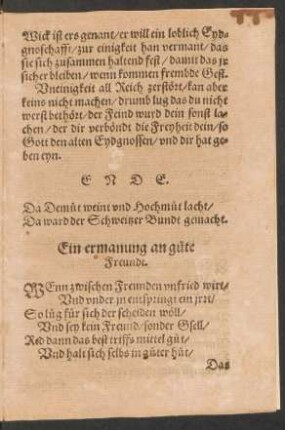 Wick ist ers genant/er will ein loblich Eyd⸗
gnoschafft/zur einigkeit han vermant/das
sie sich zusammen haltend fest/ damit das jr
sicher bleiben/wenn kommen frembde Gest.
Vneinigkeit all Reich zerstört/kan aber
keins nicht machen/drumb lug das du nicht
werst bethört/der Feind wurd dein sonst la⸗
chen/der dir verböndt die Freyheit dein/so
Gott den alten Eydgnossen/vnd dir hat ge⸗
ben eyn.
E N D E.
Da Demüt weint vnd Hochmüt lacht/
Da ward der Schweitzer Bundt gemacht.
Ein ermanung an güte
Freundt.
WEnn zwischen Freunden vnfried wirt/
Vnd vnder jn entspringt ein jrzt/
So lüg für sich der scheiden wöll/
Vnd sey kein Freund/sonder Gsell/
Red dann das best triffs mittel güt/
Vnd halt sich selbs in güter hüt/
Das